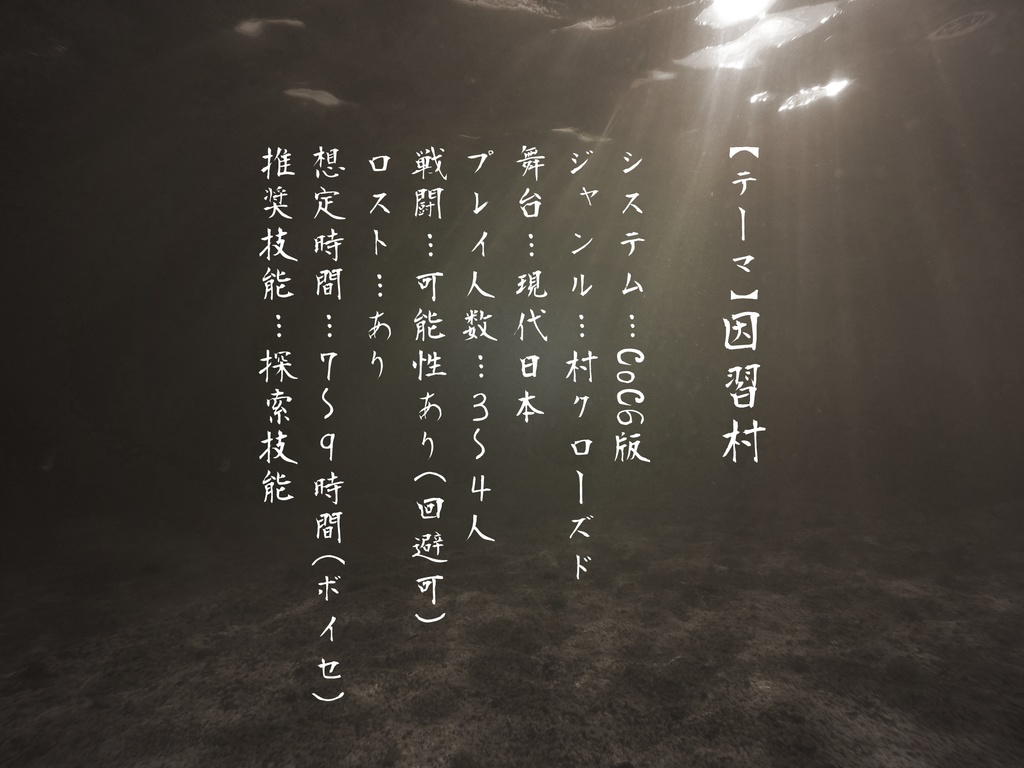 【テーマ】因習村
システム…CoC6版
ジャンル…村クローズド
舞台…現代日本
プレイ人数…3～4人
戦闘…可能性あり(回避可)
ロスト…あり
想定時間…7～9時間(ボイセ)
推奨技能…探索技能